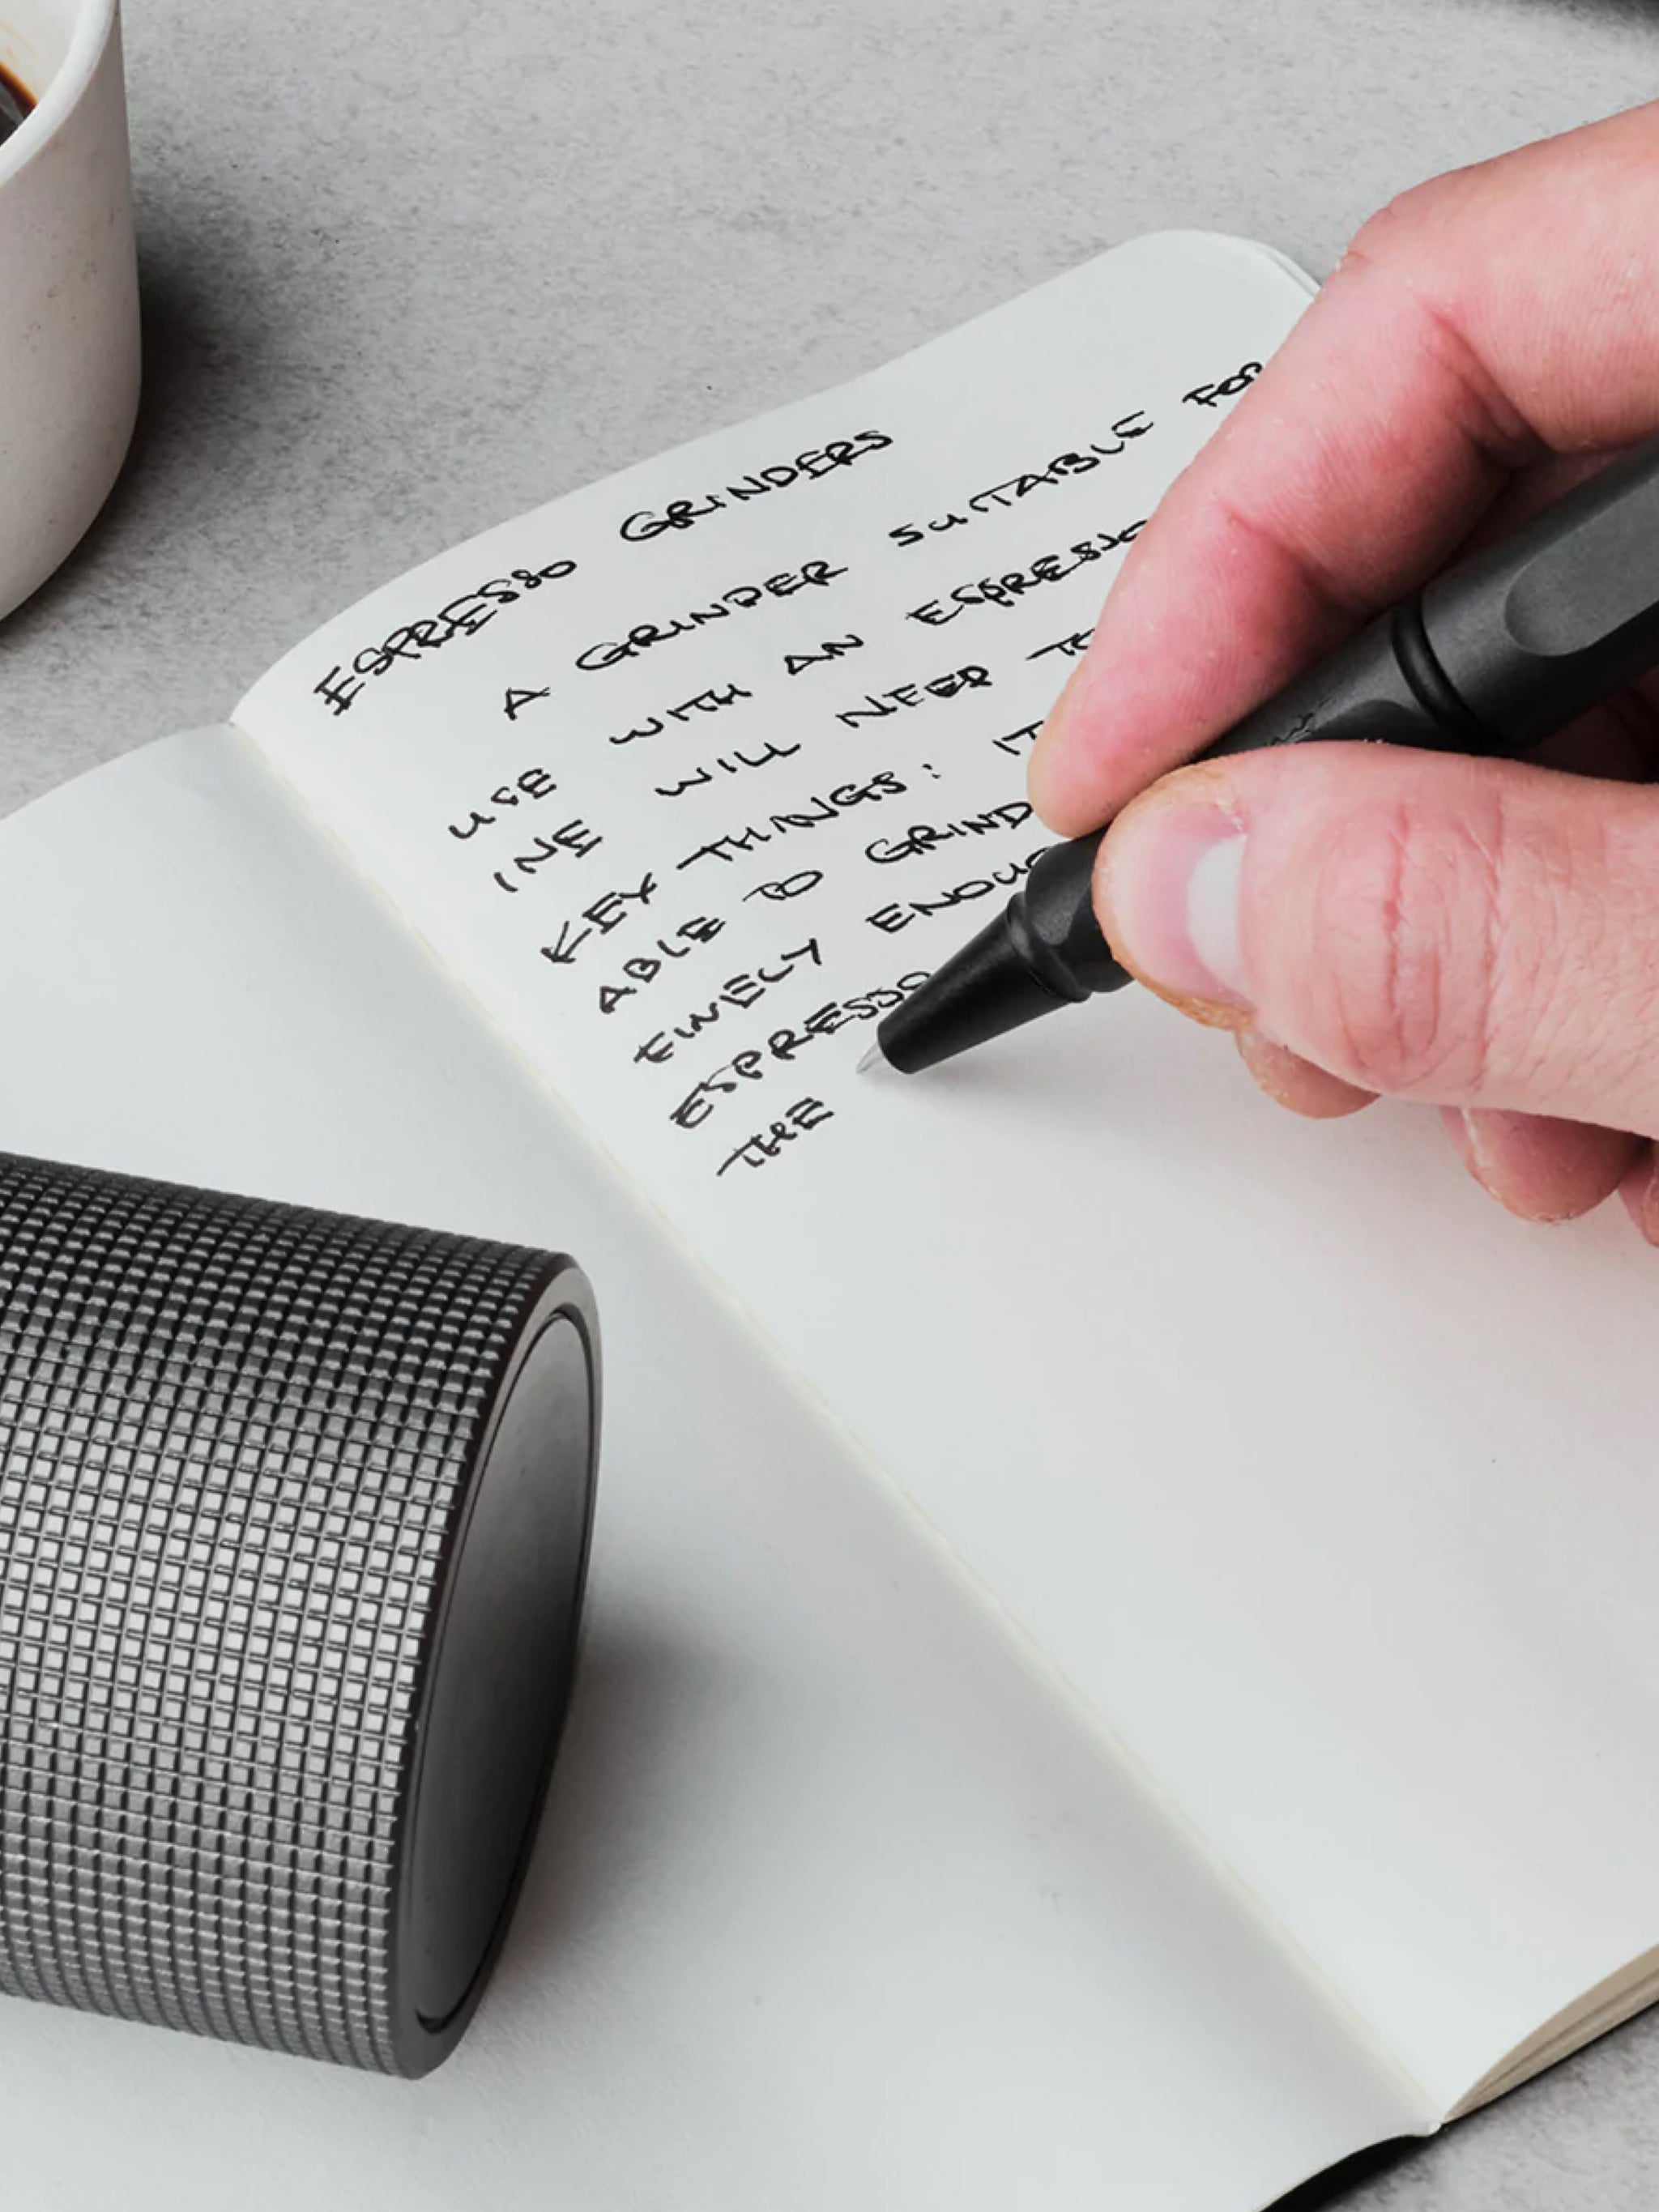 ESPRESSO GRINDERS
A GRINDER SUITABLE FOR
USE WITH AN ESPRESSO
INE WILL NEED
KEY THINGS:
ABLE TO GRIND
FINELY
ESPRESSO
THE